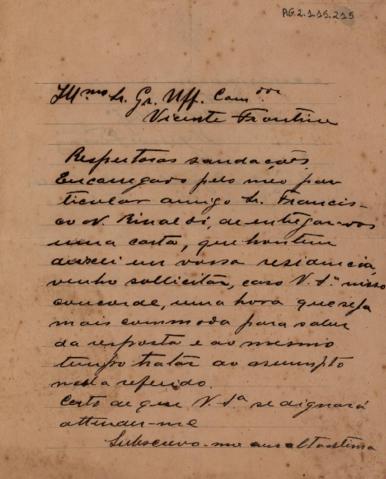 AG.2.1.15.215
Illmo Sr. Gr. Uff. Comdor.
Vicente Frontini
Respeitosas saudações
Encarregado pelo meu par
ticular amigo Sr. Francis-
co N. Rinaldi, de entregar-vos
uma carta, que hontem
deixei em vossa residencia,
venho sollicitar, caso V. Sª nisso
concorde, uma hora que seja
mais commoda para saber
da resposta e ao mesmo
tempo tratar ao assumpto
nella referido.
Certo de que V. Sª se dignará
attender-me
Subscrevo-me em alta estima